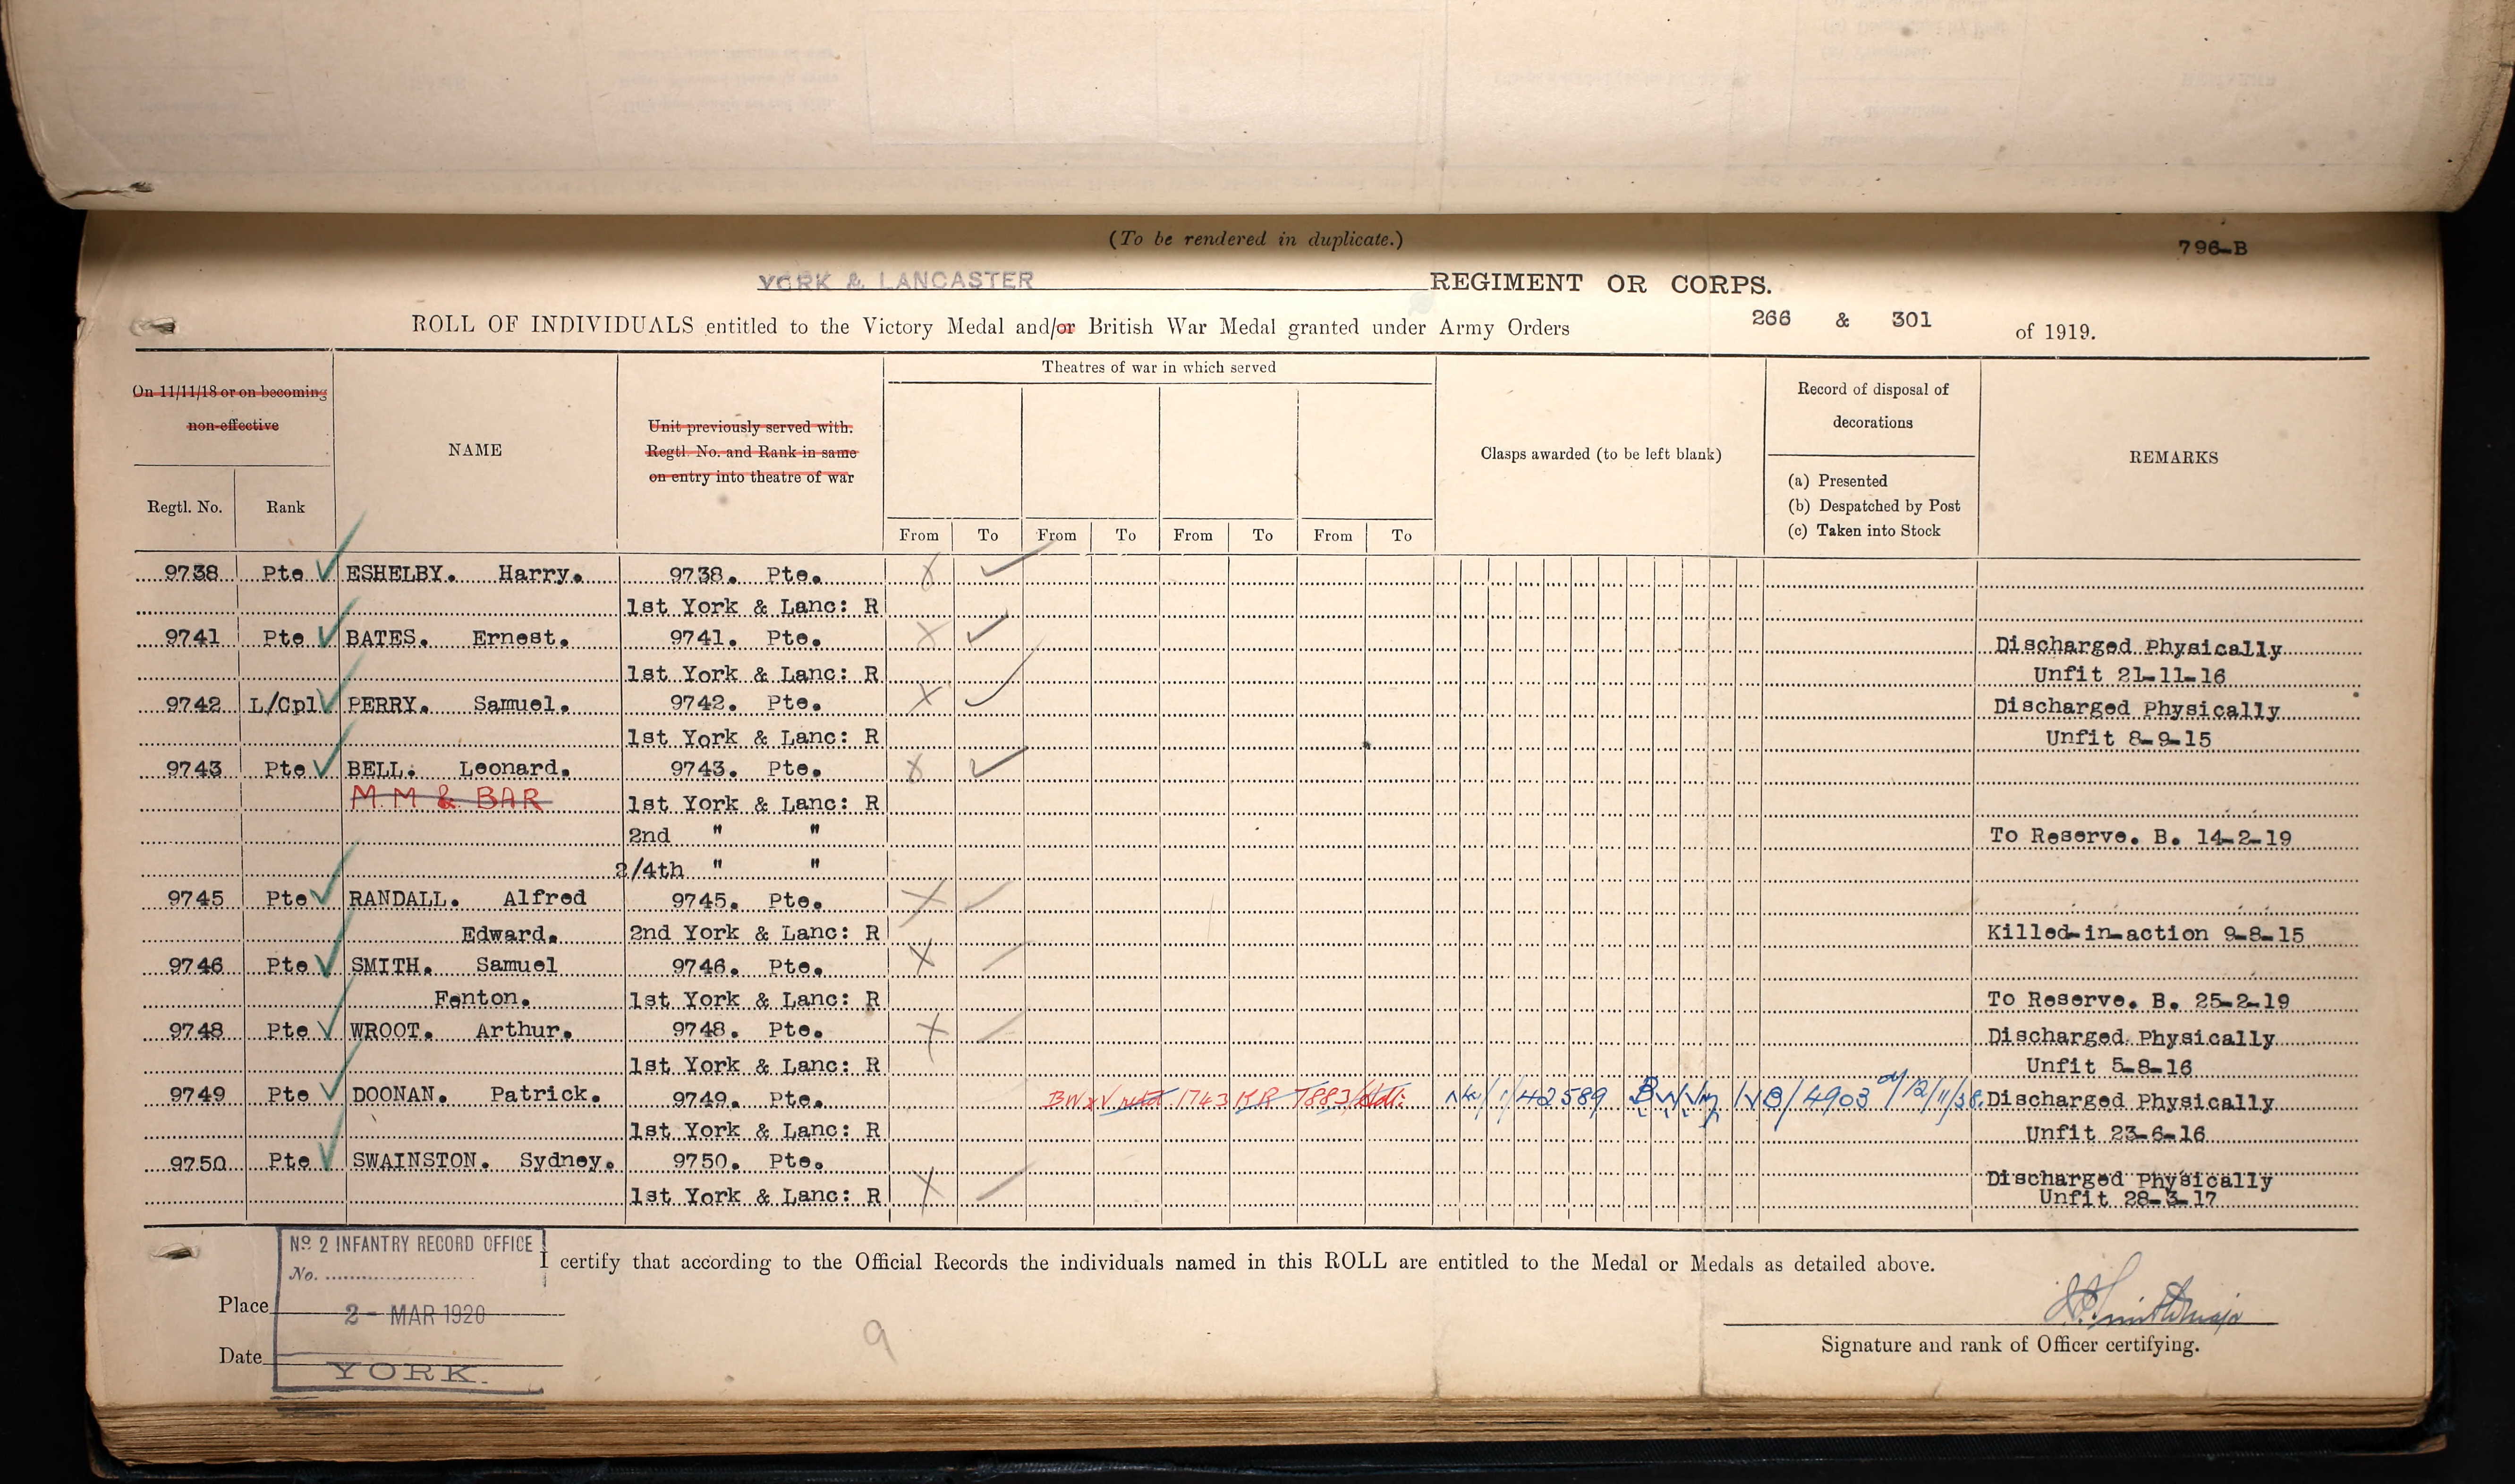 (To be rendered in duplicate.)
796-B
YORK & LANCASTER REGIMENT OR CORPS.
ROLL OF INDIVIDUALS entitled to the Victory Medal and/or British War Medal granted under Army Orders 266 & 301 of 1919.
On 11/11/18 or on becoming
non-effective
Regtl. No. Rank
NAME
Unit previously served with.
Regtl. No. and Rank in same
on entry into theatre of war
Theatres of war in which served
From To From To From To From To
Clasps awarded (to be left blank)
Record of disposal of
decorations
(a) Presented
(b) Despatched by Post
(c) Taken into Stock
REMARKS
9738 Pte ESHELBY. Harry. 9738. Pte.
1st York & Lanc: R
9741 Pte BATES. Ernest. 9741. Pte. Discharged Physically
1st York & Lanc: R Unfit 21-11-16
9742 L/Cpl PERRY. Samuel. 9742. Pte. Discharged Physically
1st York & Lanc: R Unfit 8-9-15
9743 Pte BELL. Leonard. 9743. Pte.
M.M & BAR 1st York & Lanc: R
2nd " " To Reserve. B. 14-2-19
2/4th " "
9745 Pte RANDALL. Alfred 9745. Pte.
Edward. 2nd York & Lanc: R Killed-in-action 9-8-15
9746 Pte SMITH. Samuel 9746. Pte.
Fenton. 1st York & Lanc: R To Reserve. B. 25-2-19
9748 Pte WROOT. Arthur. 9748. Pte. Discharged Physically
1st York & Lanc: R Unfit 5-8-16
9749 Pte DOONAN. Patrick. 9749. Pte. 1743 KR 42589 Discharged Physically
1st York & Lanc: R Unfit 23-6-16
9750 Pte SWAINSTON. Sydney. 9750. Pte. Discharged Physically
1st York & Lanc: R Unfit 28-3-17
No 2 INFANTRY RECORD OFFICE
No.
I certify that according to the Official Records the individuals named in this ROLL are entitled to the Medal or Medals as detailed above.
Place
2 - MAR 1920
9
Signature and rank of Officer certifying.
Date
YORK.